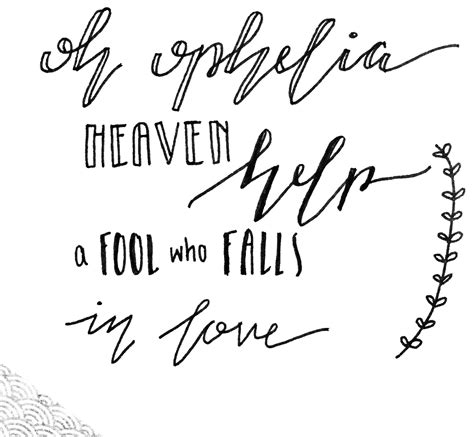 oh ophelia
HEAVEN help
a FOOL who FALLS
in love